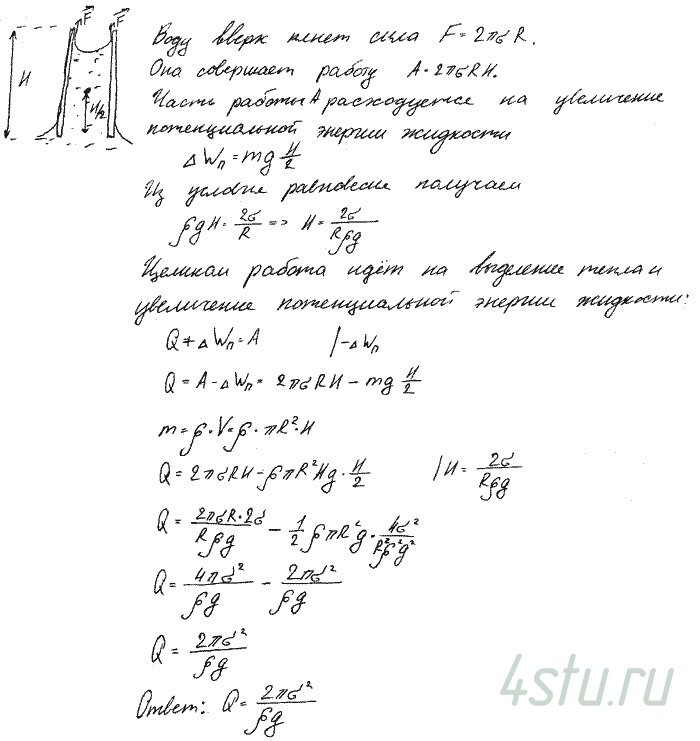 F F
H
H/2
Воду вверх тянет сила F=2πσR.
Она совершает работу A=2πσRH.
Часть работы A расходуется на увеличение
потенциальной энергии жидкости
ΔWп=mg H/2
Из условие равновесие получаем
ρgH=2σ/R => H=2σ/Rρg
Целиком работа идёт на выделение тепла и
увеличение потенциальной энергии жидкости:
Q+ΔWп=A |-ΔWп
Q=A-ΔWп=2πσRH-mg H/2
m=ρ·V=ρ·πR²·H
Q=2πσRH-ρπR²Hg·H/2 |H=2σ/Rρg
Q=2πσR·2σ/Rρg - 1/2 ρπR²g·4σ²/R²ρ²g²
Q=4πσ²/ρg - 2πσ²/ρg
Q=2πσ²/ρg
Ответ: Q=2πσ²/ρg
4stu.ru